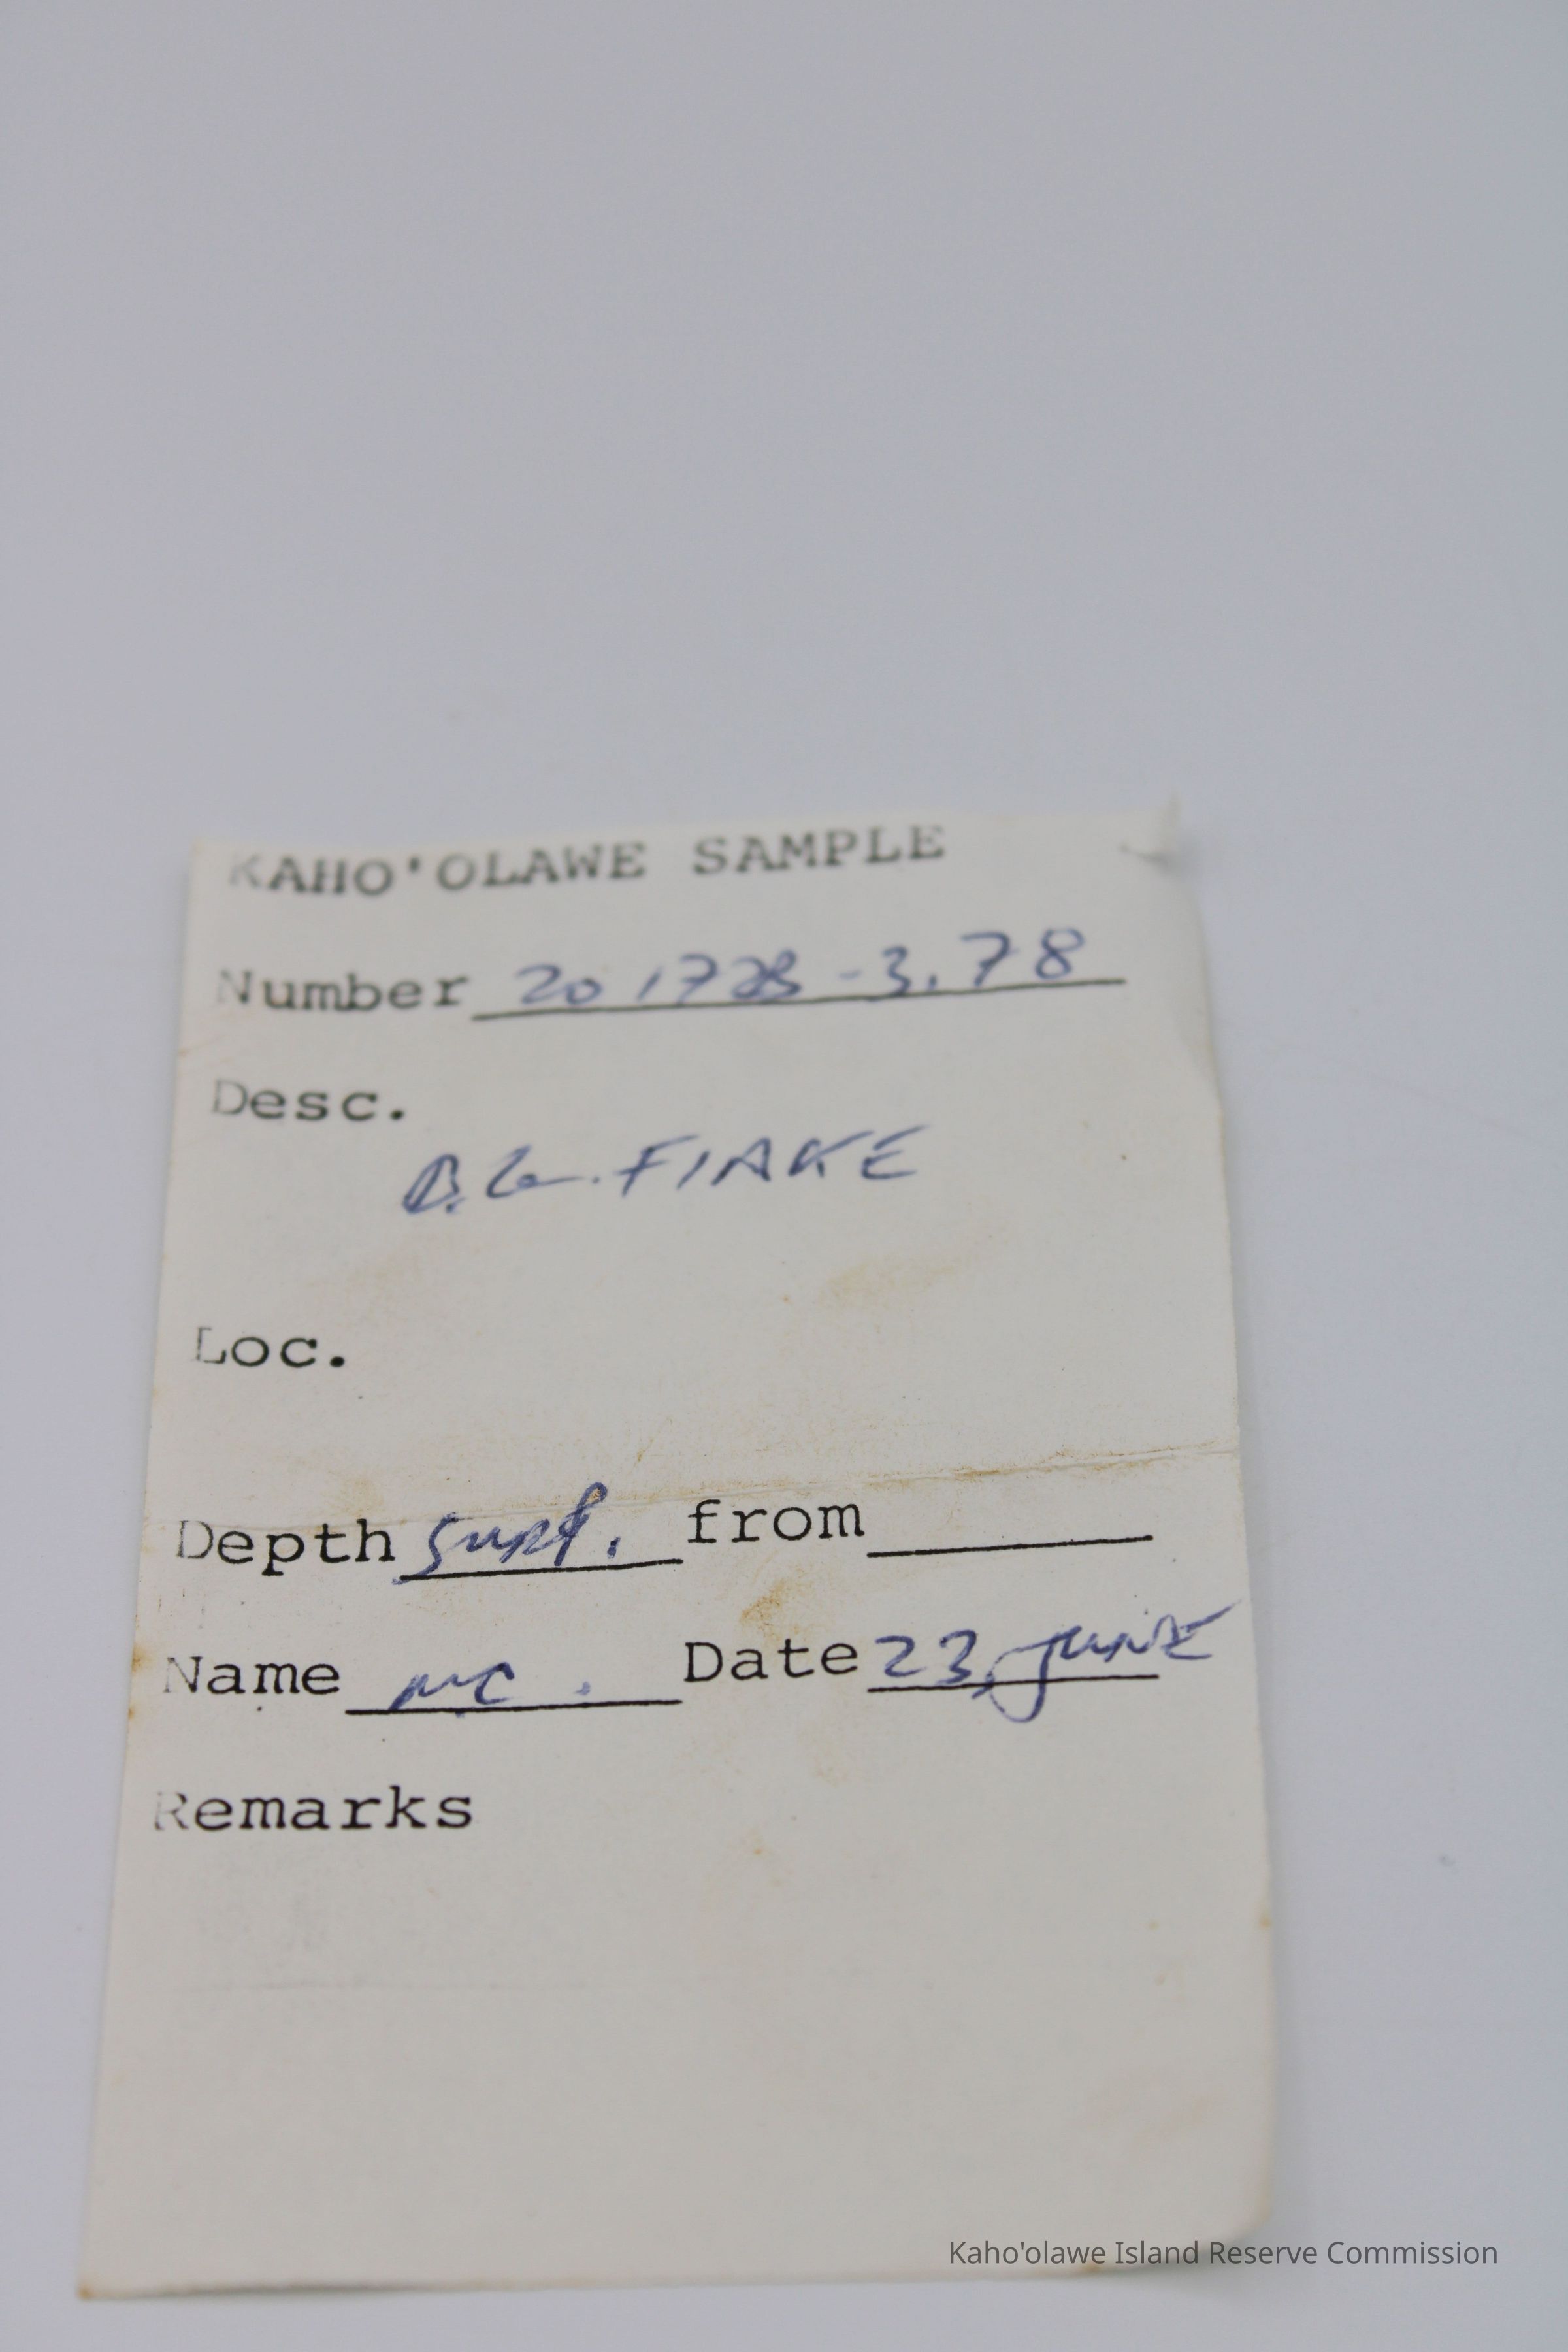 KAHO'OLAWE SAMPLE
Number -3.78
Desc.
B.G. FlAKE
Loc.
Depth surf. from
Name MC. Date 23, JUNE
Remarks
Kaho'olawe Island Reserve Commission